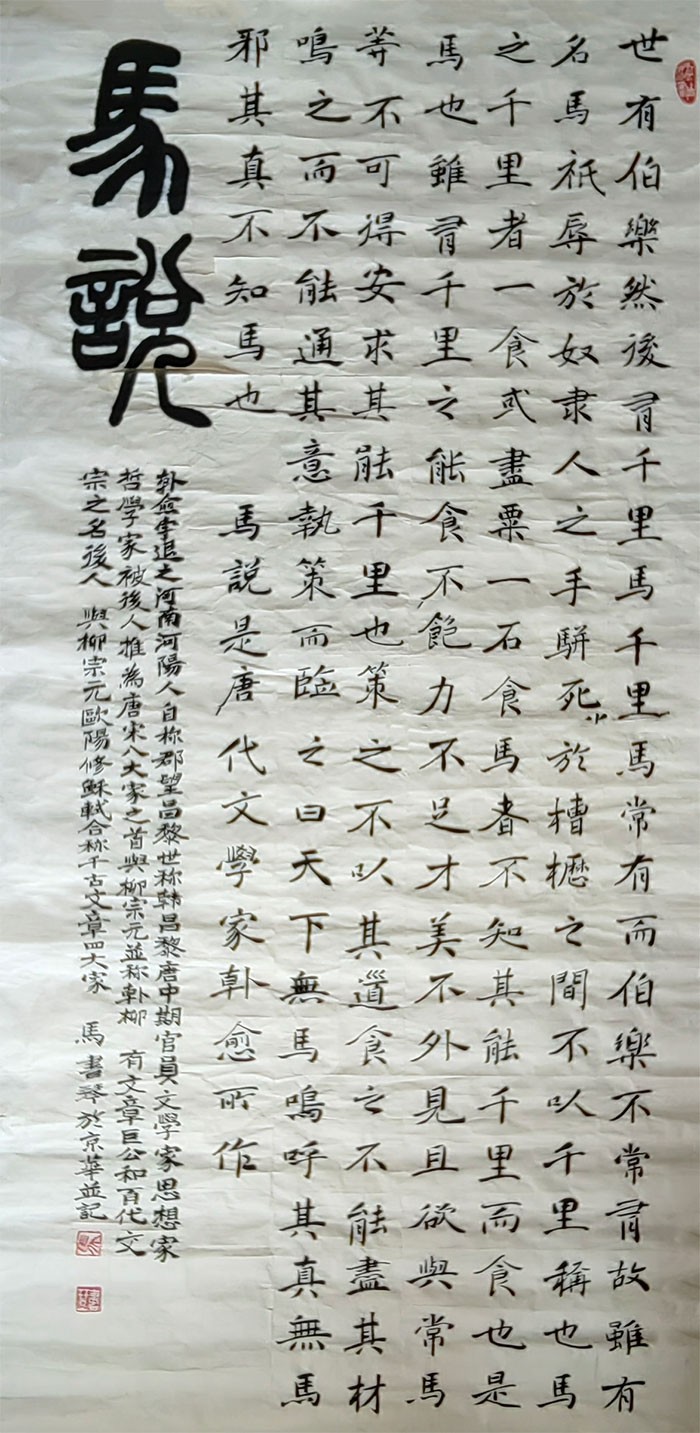 世有伯樂然後有千里馬千里馬常有而伯樂不常有故雖有
名馬祇辱於奴隶人之手駢死於槽櫪之間不以千里稱也馬
之千里者一食或盡粟一石食馬者不知其能千里而食也是
馬也雖有千里之能食不飽力不足才美不外見且欲與常馬
等不可得安求其能千里也策之不以其道食之不能盡其材
鳴之而不能通其意執策而臨之曰天下無馬嗚呼其真無馬
邪其真不知馬也 馬說是唐代文學家韩愈所作
馬說
韩愈字退之河南河陽人自称郡望昌黎世称韩昌黎唐中期官員文學家思想家
哲學家被後人推為唐宋八大家之首與柳宗元並称韩柳 有文章巨公和百代文
宗之名後人 與柳宗元歐陽修蘇軾合称千古文章四大家 馬書琴於京華並記